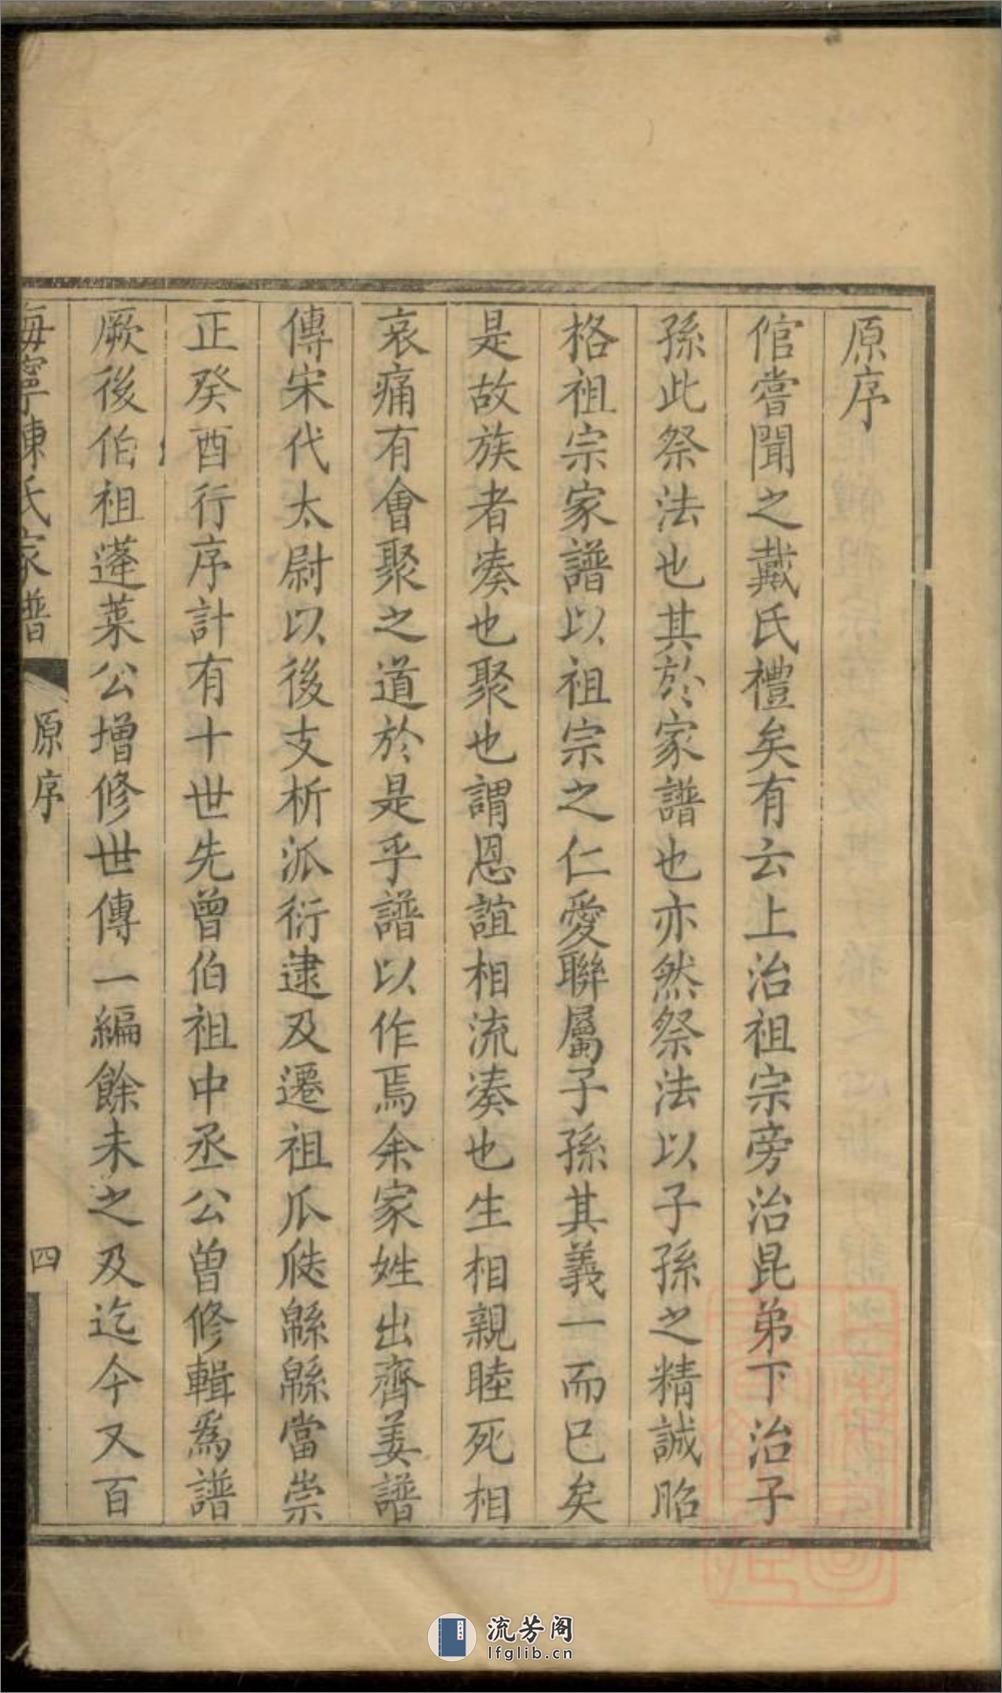 原序
倌嘗聞之戴氏禮矣有云上治祖宗旁治昆弟下治子
孫此祭法也其於家譜也亦然祭法以子孫之精誠昭
格祖宗家譜以祖宗之仁愛聯屬子孫其義一而已矣
是故族者湊也聚也謂恩誼相流湊也生相親睦死相
哀痛有會聚之道於是乎譜以作焉余家姓出齊姜譜
傳宋代太尉以後支析派衍逮及遷祖瓜瓞緜緜當崇
正癸酉行序計有十世先曾伯祖中丞公曾修輯爲譜
厥後伯祖蓬萊公增修世傳一編餘未之及迄今又百
海寧陳氏家譜
原序
四
流芳阁
lfglib.cn